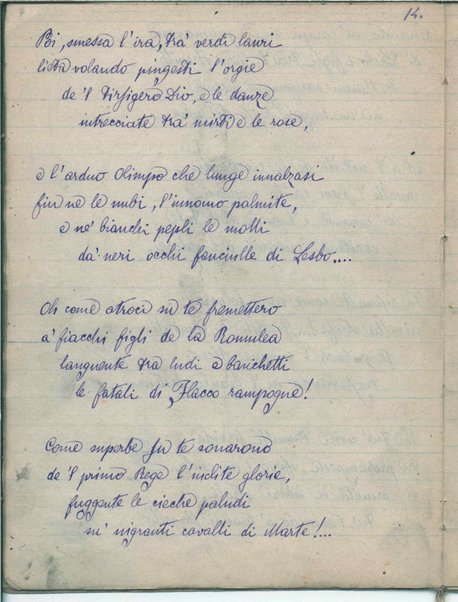 14.
Poi, smessa l'ira, trà verdi lauri
lieta volando pingesti l'orgie
de 'l Tirsigero Dio, e le danze
intrecciate trà mirti e le rose,
e l'arduo Olimpo che lunge innalzasi
fin ne le nubi, l'innomo palmite,
e ne' bianchi pepli le molli
dà neri occhi fanciulle di Lesbo....
Oh come atroci su te fremettero
à fiacchi figli de la Romulea
languente tra ludi a banchetti
le fatali di Flacco rampogne!
Come superbe su te sonarono
de 'l primo Rege l'inclite glorie,
fuggente le cieche paludi
su' nigranti cavalli di Marte!...